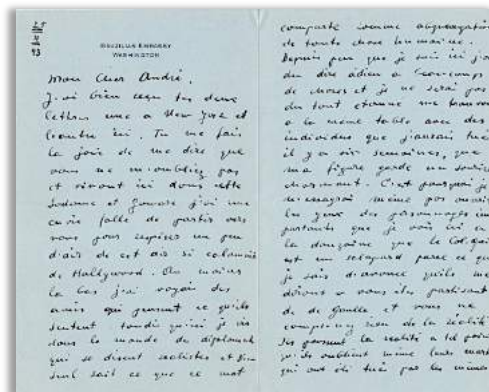 25
43
BRAZILIAN EMBASSY
WASHINGTON
Mon cher André,
J'ai bien reçu tes deux
lettres une a New York et
l'autre ici. Tu me fais
la joie de me dire que
vous ne m'oubliez pas
et vivant ici dans cette
Sodome et Gomore j'ai une
envie folle de partir vers
vous pour respirer un peu
d'air de cet air si calomnié
de Hollywood. Au moins
la bas j'ai voyais des
amis qui pensent ce qu'ils
sentent tandis qu'ici je vis
dans le monde de diplomates
qui se disent realistes et Dieu
seul sait ce que ce mot
comporte comme abnegation
de toute chose humaine.
Depuis peu que je suis ici j'ai
du dire adieu a beaucoup
de choses et je ne serai pas
du tout etonné me trouver
a la même table avec des
individus que j'aurais tué
il y a six semaines, que
ma figure garde un sourire
charmant. C'est pourquoi je
n'essayrai même pas ouvrir
les yeux des personnages im
portants que je vois ici a
la douzaine que le
est un salopard parce que
je sais d'avance qu'ils me
diront "vous êtes partisan
de de Gaulle et vous ne
comprenez rien de la réalité"
Ils pensent la réalité a tel point
qu'ils oublient même leurs morts
qui ont été tués par les mêmes